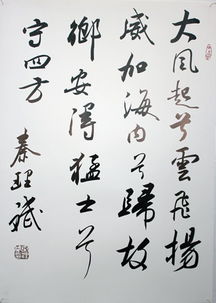 大风起兮雲飛揚
威加海内兮歸故
鄉安得猛士兮
守四方
秦理斌